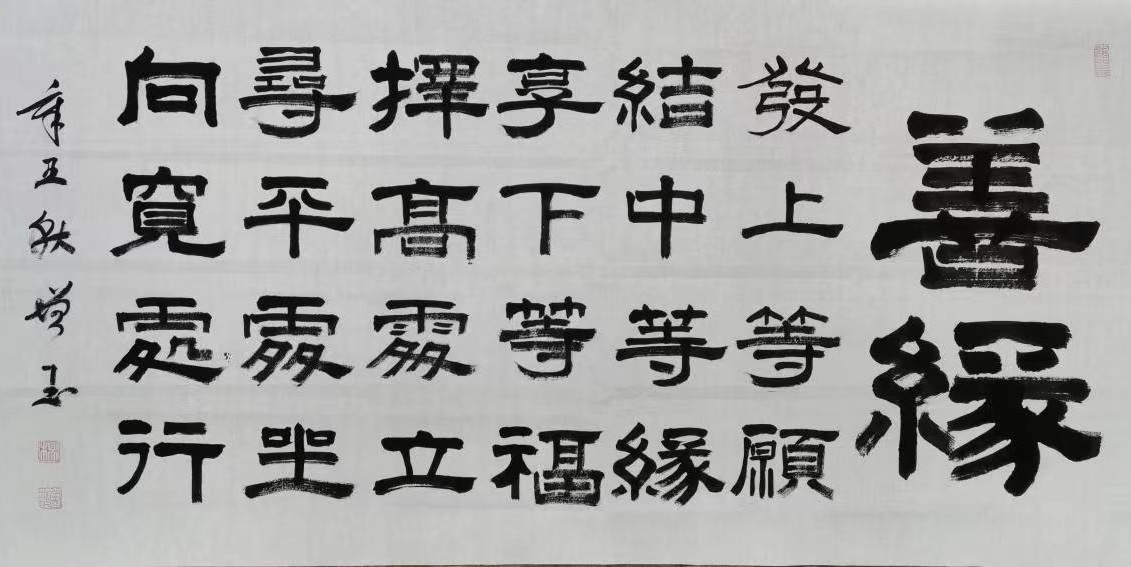 善緣
發上等願
結中等緣
享下等福
擇高處立
尋平處坐
向寬處行
辛丑秋